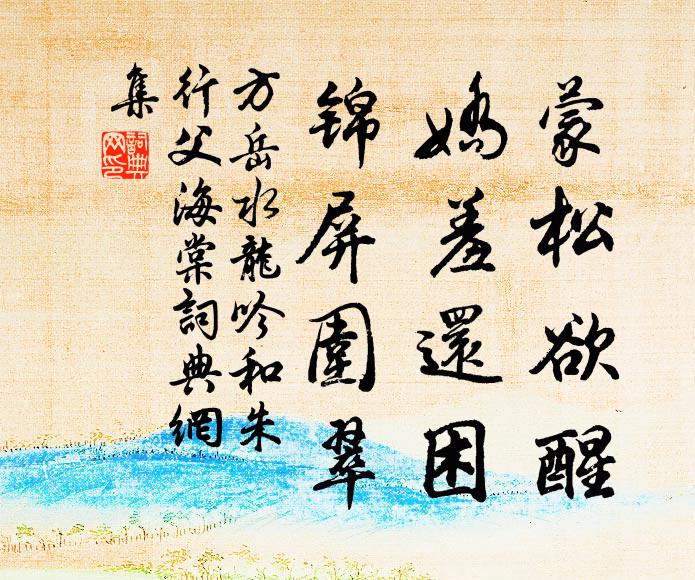 蒙松欲醒
嬌羞還困
錦屏圍翠
方岳水龍吟和朱
行父海棠詞典網
集
詞典
网印